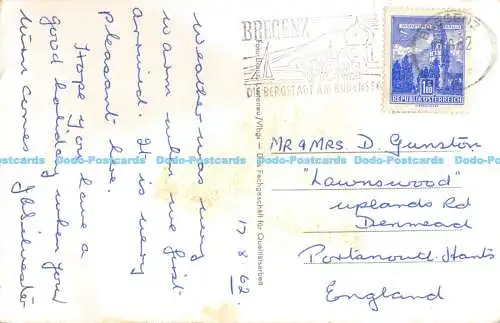 Weather was very
warm when we first
arrived. It is very
pleasant here.
Hope you have a
good holiday when your
turn comes.
17.8.62.
BREGENZ
DIE BERGSTADT AM BODENSEE
BREGENZ
REPUBLIK ÖSTERREICH
Das Fachgeschäft für Qualitätsarbeit
MR & MRS D. GUNSTON
"Lawnswood"
uplands Rd
Denmead
Portsmouth. Hants
England
Dodo-Postcards Dodo-Postcards Dodo-Postcards Dodo-Postcards Dodo-Postcards